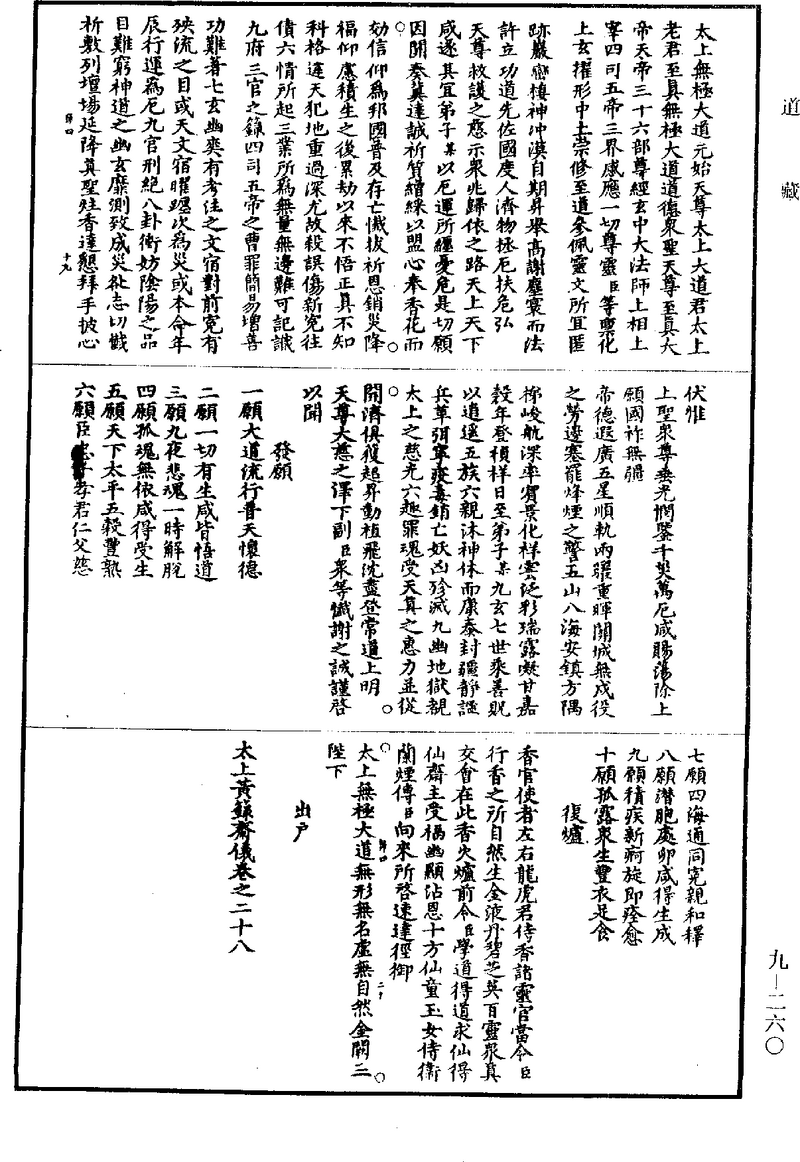 道藏
太上無極大道元始天尊太上大道君太上
老君至真無極大道道德衆聖天尊至真大
帝天帝三十六部尊經玄中大法師上相上
宰四司五帝三界感應一切尊靈臣等稟化
上玄擢形中土崇修至道參佩靈文所宜匿
跡巖巒棲神沖漠自期昇舉高謝塵寰而法
許立功道先佐國度人濟物拯厄扶危弘
天尊救護之慈示衆兆歸依之路天上天下
咸遂其宜弟子某以厄運所纏憂危是切願
因開奏冀達誠祈質繒綵以盟心奉香花而
効信仰爲邦國普及存亡懺拔祈恩銷災降
福仰慮積生之後累劫以來不悟正真不知
科格違天犯地重過深尤故殺誤傷新冤往
債六情所起三業所爲無量無邊難可記識
九府三官之籙四司五帝之曹罪簡易增善
功難著七玄幽爽有考往之文宿對前冤有
殃流之目或天文宿曜躔次爲災或本命年
辰行運爲厄九官刑絕八卦衝妨陰陽之品
目難窮神道之幽玄靡測致成災咎志切懺
祈敷列壇場延降真聖炷香達懇拜手披心
第四
十九
伏惟
上聖衆尊垂光憫鑒千災萬厄咸賜蕩除上
願國祚無疆
帝德遐廣五星順軌兩曜重暉關城無戍役
之勞邊塞罷烽煙之警五山八海安鎮方隅
梯峻航深率賓景化祥雲泛彩瑞露凝甘嘉
穀年登禎祥日至弟子某九玄七世乘善貺
以逍遥五族六親沐神休而康泰封疆靜謐
兵革弭寧疫毒銷亡妖凶殄滅九幽地獄覩
太上之慈光六趣罪魂受天真之惠力並從
開濟俱獲超昇動植飛沈盡登常道上明
天尊大慈之澤下副臣衆等懺謝之誠謹啓
以聞
發願
一願大道流行普天懷德
二願一切有生咸皆悟道
三願九夜悲魂一時解脫
四願孤魂無依咸得受生
五願天下太平五穀豐熟
六願臣忠子孝君仁父慈
七願四海通同冤親和釋
八願潛胞處卵咸得生成
九願積疾新痾旋即痊愈
十願孤露衆生豐衣足食
復爐
香官使者左右龍虎君侍香諸靈官當令臣
行香之所自然生金液丹碧芝英百靈衆真
交會在此香火爐前令臣學道得道求仙得
仙齋主受福幽顯沾恩十方仙童玉女侍衛
蘭煙傳臣向來所啓速達徑御
第四
二十
太上無極大道無形無名虛無自然金闕三
陛下
出户
太上黃籙齋儀卷之二十八
九—二六〇